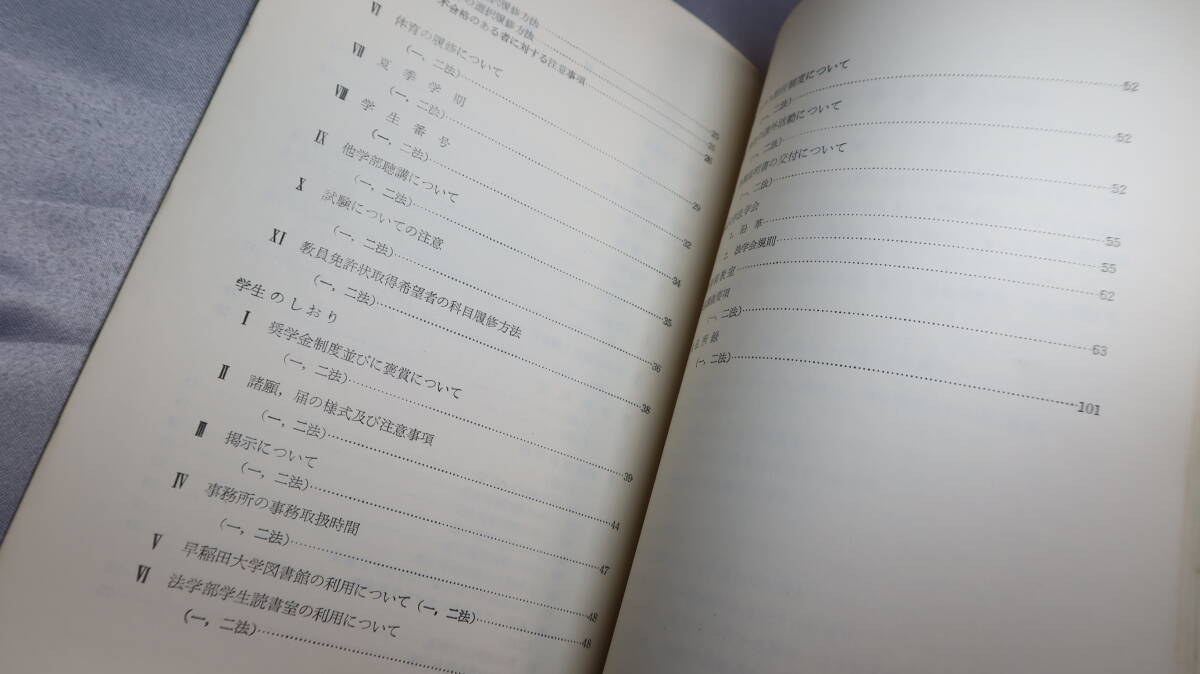 択履修方法
の選択履修方法 25
不合格のある者に対する注意事項 25
Ⅵ 体育の履修について
(一, 二法) 26
Ⅶ 夏季学期
(一, 二法) 29
Ⅷ 学生番号
(一, 二法) 32
Ⅸ 他学部聴講について
(一, 二法) 34
Ⅹ 試験についての注意
(一, 二法) 35
Ⅺ 教員免許状取得希望者の科目履修方法
(一, 二法) 36
学生のしおり
Ⅰ 奨学金制度並びに褒賞について
(一, 二法) 38
Ⅱ 諸願, 届の様式及び注意事項
(一, 二法) 39
Ⅲ 掲示について
(一, 二法) 44
Ⅳ 事務所の事務取扱時間
(一, 二法) 47
Ⅴ 早稲田大学図書館の利用について (一, 二法) 48
Ⅵ 法学部学生読書室の利用について 48
(一, 二法)
制度について
(一, 二法) 52
課外活動について
(一, 二法) 52
証明書の交付について
(一, 二法) 52
法学会
1. 沿革 55
2. 法学会規則 55
教室 62
要項
(一, 二法) 63
所録
(一, 二法) 101